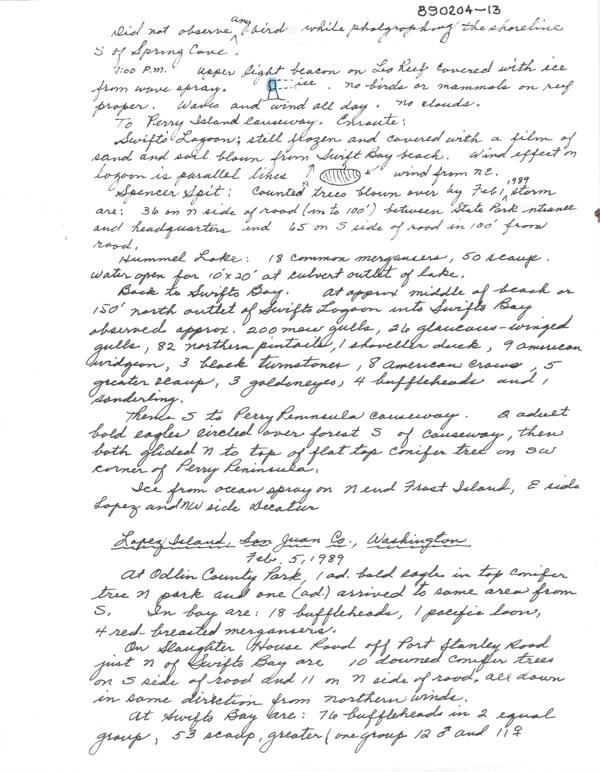 890204-13
Did not observe any bird while photgraphing the shoreline
S of Spring Cove.
4:00 P.M. Upper light beacon on Leo Reef covered with ice
from wave spray. ice. no birds or mammals on reef
proper. Waves and wind all day. no clouds.
To Perry Island causeway. Enroute:
Swifts Lagoon; still frozen and covered with a film of
sand and soil blown from Swift Bay beach. Wind effect on
lagoon is parallel lines wind from NE.
Spencer Spit: Counted trees blown over by Feb 1, 1989 storm
are: 36 on N side of road (in to 100') between State Park entrance
and headquarters and 65 on S side of road in 100' from
road.
Hummel Lake: 18 common mergansers, 50 scaup.
Water open for 10'x20' at culvert outlet of lake.
Back to Swifts Bay. At approx middle of beach or
150' north outlet of Swifts Lagoon into Swifts Bay
observed approx. 200 mew gulls, 26 glaucous-winged
gulls, 82 northern pintails, 1 shoveller duck, 9 american
widgeon, 3 black turnstones, 8 american crows, 5
greater scaup, 3 goldeneyes, 4 buffleheads and 1
sanderling.
Thence S to Perry Peninsula causeway. 2 adult
bald eagles circled over forest S of causeway, then
both glided N to top of flat top conifer tree on SW
corner of Perry Peninsula.
Ice from ocean spray on N end Frost Island, E side
Lopez and NW side Decatur
Lopez Island, San Juan Co., Washington
Feb. 5, 1989
At Odlin County Park, 1 ad. bald eagle in top conifer
tree N park and one (ad.) arrived to same area from
S. In bay are: 18 buffleheads, 1 pacific loon,
4 red-breasted mergansers.
On Slaughter House Road off Port Stanley Road
just N of Swifts Bay are 10 downed conifer trees
on S side of road and 11 on N side of road, all down
in same direction from northern winds.
At Swifts Bay are: 76 buffleheads in 2 equal
group, 53 scaup, greater (one group 12 ♂ and 11 ♀